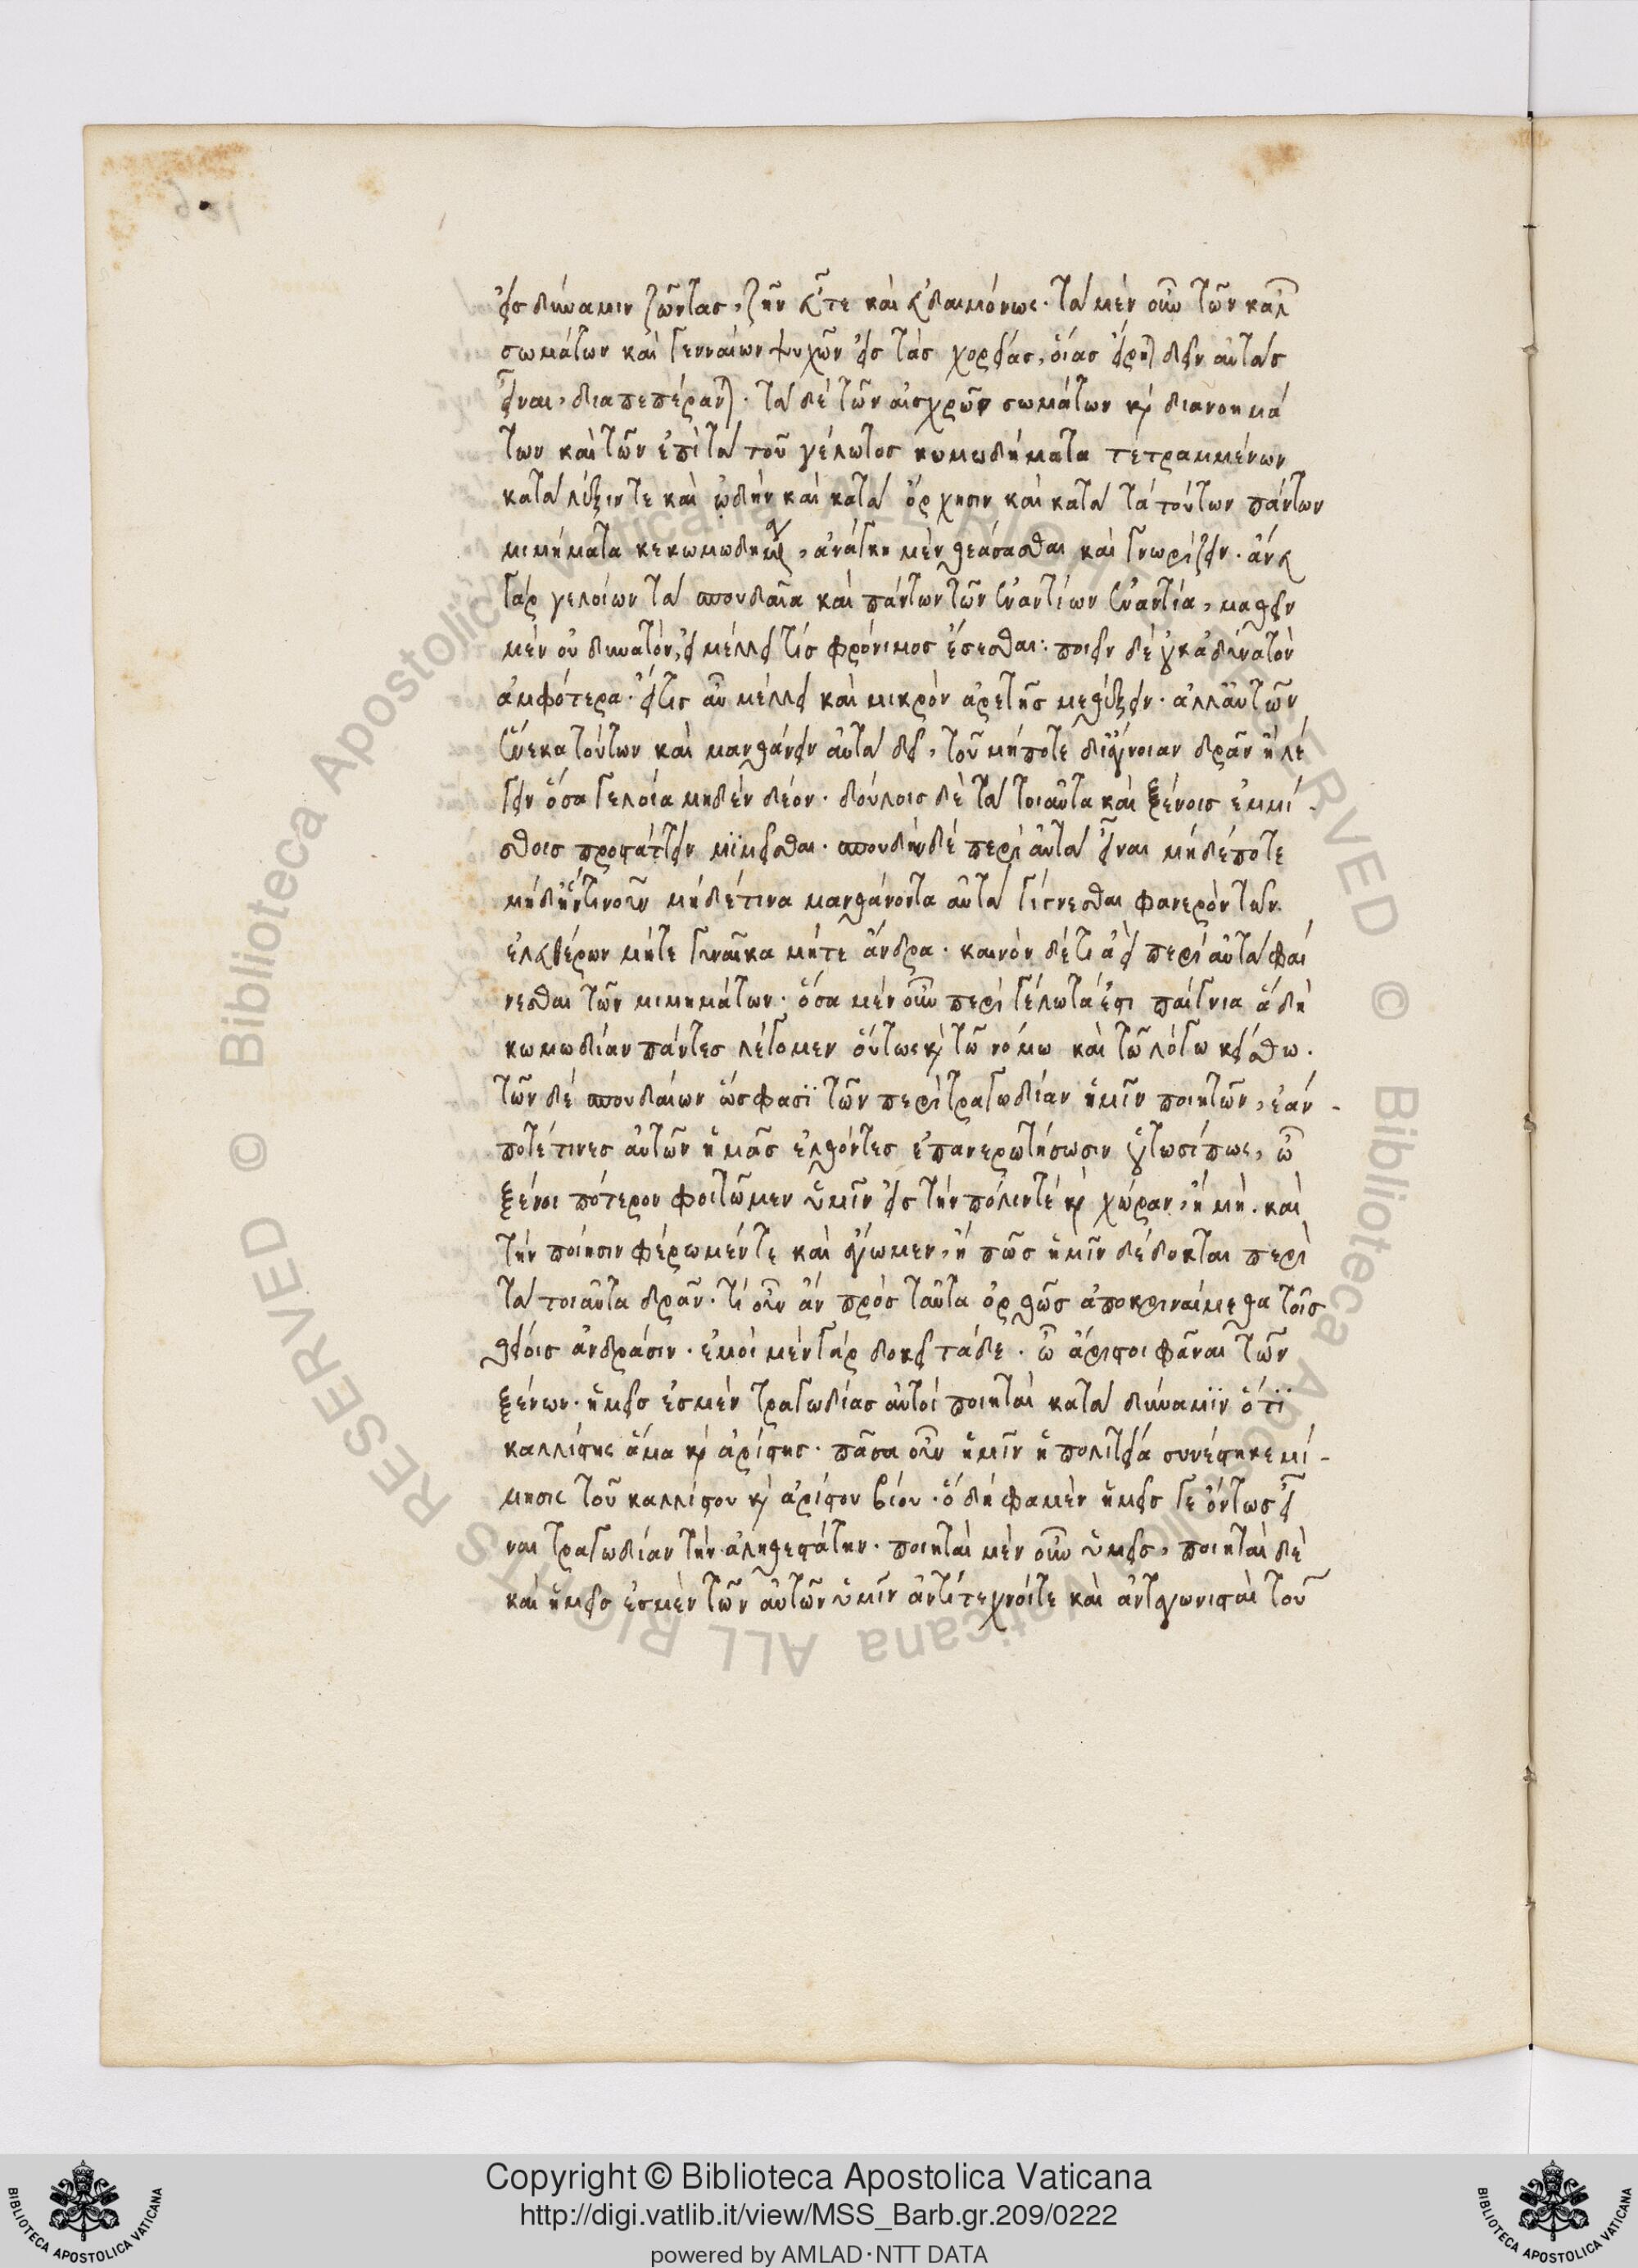 εἰς δύναμιν ζῶντας, ζῆν εὖ τε καὶ εὐδαιμόνως. τὰ μὲν οὖν τῶν καλῶν
σωμάτων καὶ γενναίων ψυχῶν εἰς τὰς χορείας, οἵας εἴρηται δεῖν αὐτὰς
εἶναι, διαπεπέρανται. τὰ δὲ τῶν αἰσχρῶν σωμάτων καὶ διανοημά
των καὶ τῶν ἐπὶ τὰ τοῦ γέλωτος κωμωδήματα τετραμμένων
κατὰ λέξιν τε καὶ ᾠδὴν καὶ κατὰ ὄρχησιν καὶ κατὰ τὰ τούτων πάντων
μιμήματα κεκωμωδημένα, ἀνάγκη μὲν θεάσασθαι καὶ γνωρίζειν. ἄνευ
γὰρ γελοίων τὰ σπουδαῖα καὶ πάντων τῶν ἐναντίων ἐναντία, μαθεῖν
μὲν οὐ δυνατόν, εἰ μέλλει τίς φρόνιμος ἔσεσθαι· ποιεῖν δὲ οὐκ ἀδύνατὸν
ἀμφότερα. εἴ τις αὖ μέλλει καὶ μικρὸν ἀρετῆς μεθέξειν. ἀλλ' αὐτῶν
ἕνεκα τούτων καὶ μανθάνειν αὐτὰ δεῖ, τοῦ μήποτε δι' ἄγνοιαν δρᾶν ἢ λέ
γειν ὅσα γελοία μηδὲν δέον. δούλοις δὲ τὰ τοιαῦτα καὶ ξένοις ἐμμί-
σθοις προστάττειν μϊμεῖσθαι. σπουδὴν δὲ περὶ αὐτὰ εἶναι μηδέποτε
μηδ' ἡντινοῦν μηδέ τινα μανθάνοντα αὐτὰ γίγνεσθαι φανερὸν τῶν
ἐλευθέρων μήτε γυναῖκα μήτε ἄνδρα. καινὸν δέ τι ἀεὶ περὶ αὐτὰ φαί
νεσθαι τῶν μιμημάτων. ὅσα μὲν οὖν περὶ γέλωτά ἐστι παίγνια ἃ δὴ
κωμωδίαν πάντες λέγομεν οὕτως καὶ τῶ νόμω καὶ τῶ λόγω κείσθω.
τῶν δὲ σπουδαίων ὥς φασϊ τῶν περὶ τραγωδίαν ἡμῖν ποιητῶν, ἐάν-
ποτέ τινες αὐτῶν ἡμᾶς ἐλθόντες ἐπανερωτήσωσιν οὑτωσί πως, ὦ
ξένοι πότερον φοιτῶμεν ὑμῖν εἰς τὴν πόλιν τὲ καὶ χώραν, ἢ μή. καὶ
τὴν ποίησιν φέρωμέν τε καὶ ἄγωμεν, ἢ πῶς ἡμῖν δέδοκται περὶ
τὰ τοιαῦτα δρᾶν. τί οὖν ἂν πρὸς ταῦτα ὀρθῶς ἀποκριναίμεθα τοῖς
θείοις ἀνδράσιν. ἐμοὶ μὲν γὰρ δοκεῖ τάδε. ὦ ἄριστοι φᾶναι τῶν
ξένων. ἡμεῖς ἐσμὲν τραγωδίας αὐτοὶ ποιηταὶ κατὰ δύναμϊν ὅτϊ
καλλίστης ἅμα καὶ ἀρίστης. πᾶσα οὖν ἡμῖν ἡ πολιτεία συνέστηκε μί-
μησις τοῦ καλλίστου καὶ ἀρίστου βίου. ὃ δή φαμὲν ἡμεῖς γε ὄντως εἶ
ναι τραγωδίαν τὴν ἀληθεστάτην. ποιηταὶ μὲν οὖν ὑμεῖς, ποιηταὶ δὲ
καὶ ἡμεῖς ἐσμὲν τῶν αὐτῶν ὑμῖν ἀντίτεχνοί τε καὶ ἀνταγωνισταὶ τοῦ
Copyright © Biblioteca Apostolica Vaticana
http://digi.vatlib.it/view/MSS_Barb.gr.209/0222
powered by AMLAD·NTT DATA
BIBLIOTECA APOSTOLICA VATICANA
BIBLIOTECA APOSTOLICA VATICANA
© Biblioteca Apostolica Vaticana ALL RIGHTS RESERVED © Biblioteca Apostolica Vaticana ALL RIGHTS RESERVED